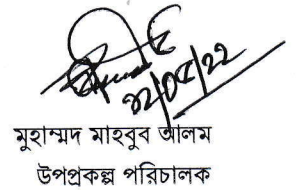 ২২/০৫/২২
মুহাম্মদ মাহবুব আলম
উপপ্রকল্প পরিচালক